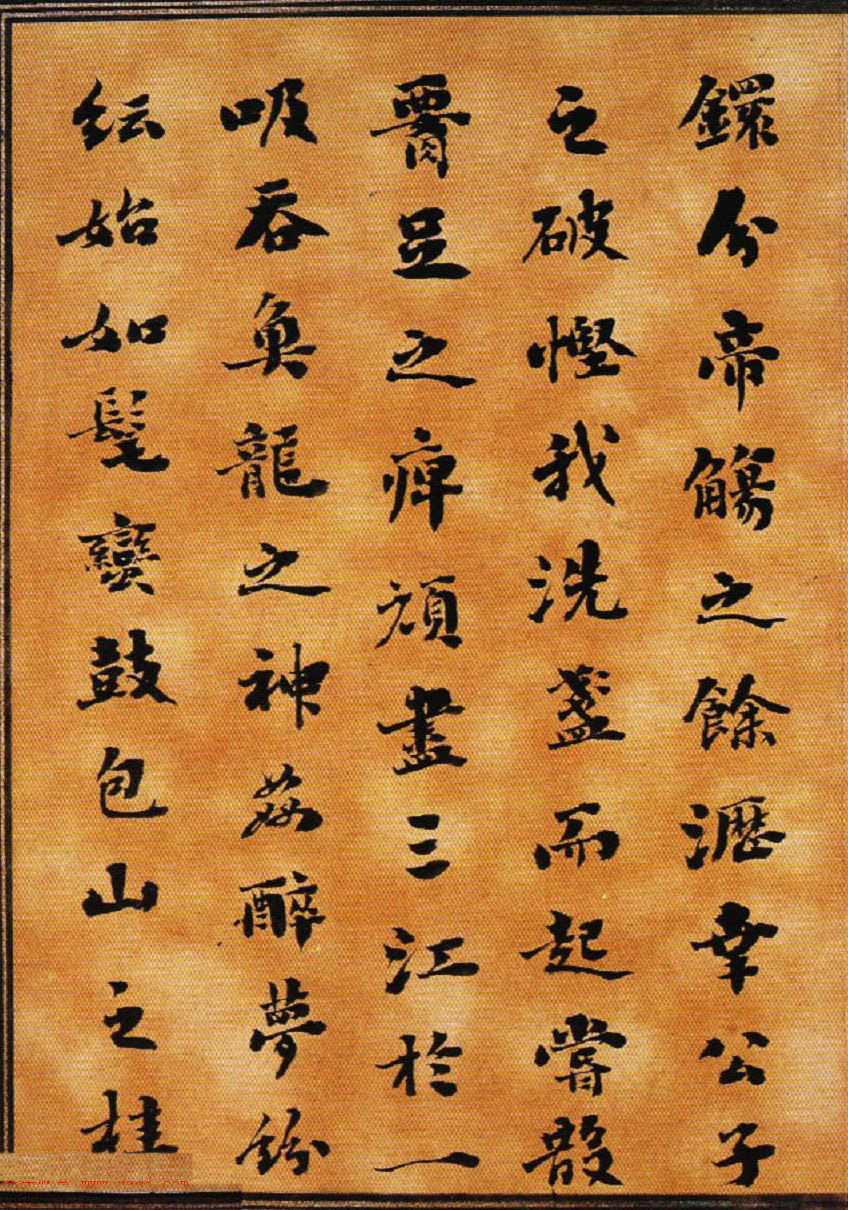 鐶分帝觴之餘瀝幸公子
之破慳我洗盞而起嘗散
腰足之痺頑盡三江於一
吸吞魚龍之神姦醉夢紛
紜始如髦蠻鼓包山之桂